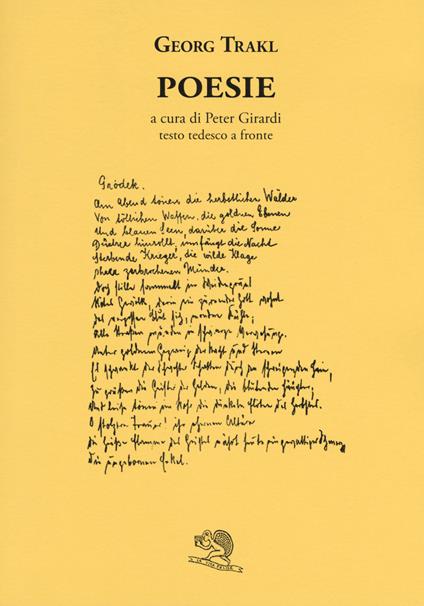 GEORG TRAKL
POESIE
a cura di Peter Girardi
testo tedesco a fronte
Grodek.
Am Abend tönen die herbstlichen Wälder
Von tödlichen Waffen, die goldnen Ebenen
Und blauen Seen, darüber die Sonne
Düstrer hinrollt; umfängt die Nacht
Sterbende Krieger, die wilde Klage
Ihrer zerbrochenen Münder.
Doch stille sammelt im Weidengrund
Rotes Gewölk, darin ein zürnender Gott wohnt
Das vergossne Blut sich, mondne Kühle;
Alle Straßen münden in schwarze Verwesung.
Unter goldnem Gezweig der Nacht und Sternen
Es schwankt der Schwester Schatten durch den schweigenden Hain,
Zu grüßen die Geister der Helden, die blutenden Häupter;
Und leise tönen im Rohr die dunklen Flöten des Herbstes.
O stolzere Trauer! ihr ehernen Altäre
Die heiße Flamme des Geistes nährt heute ein gewaltiger Schmerz,
Die ungebornen Enkel.
LA VITA FELICE